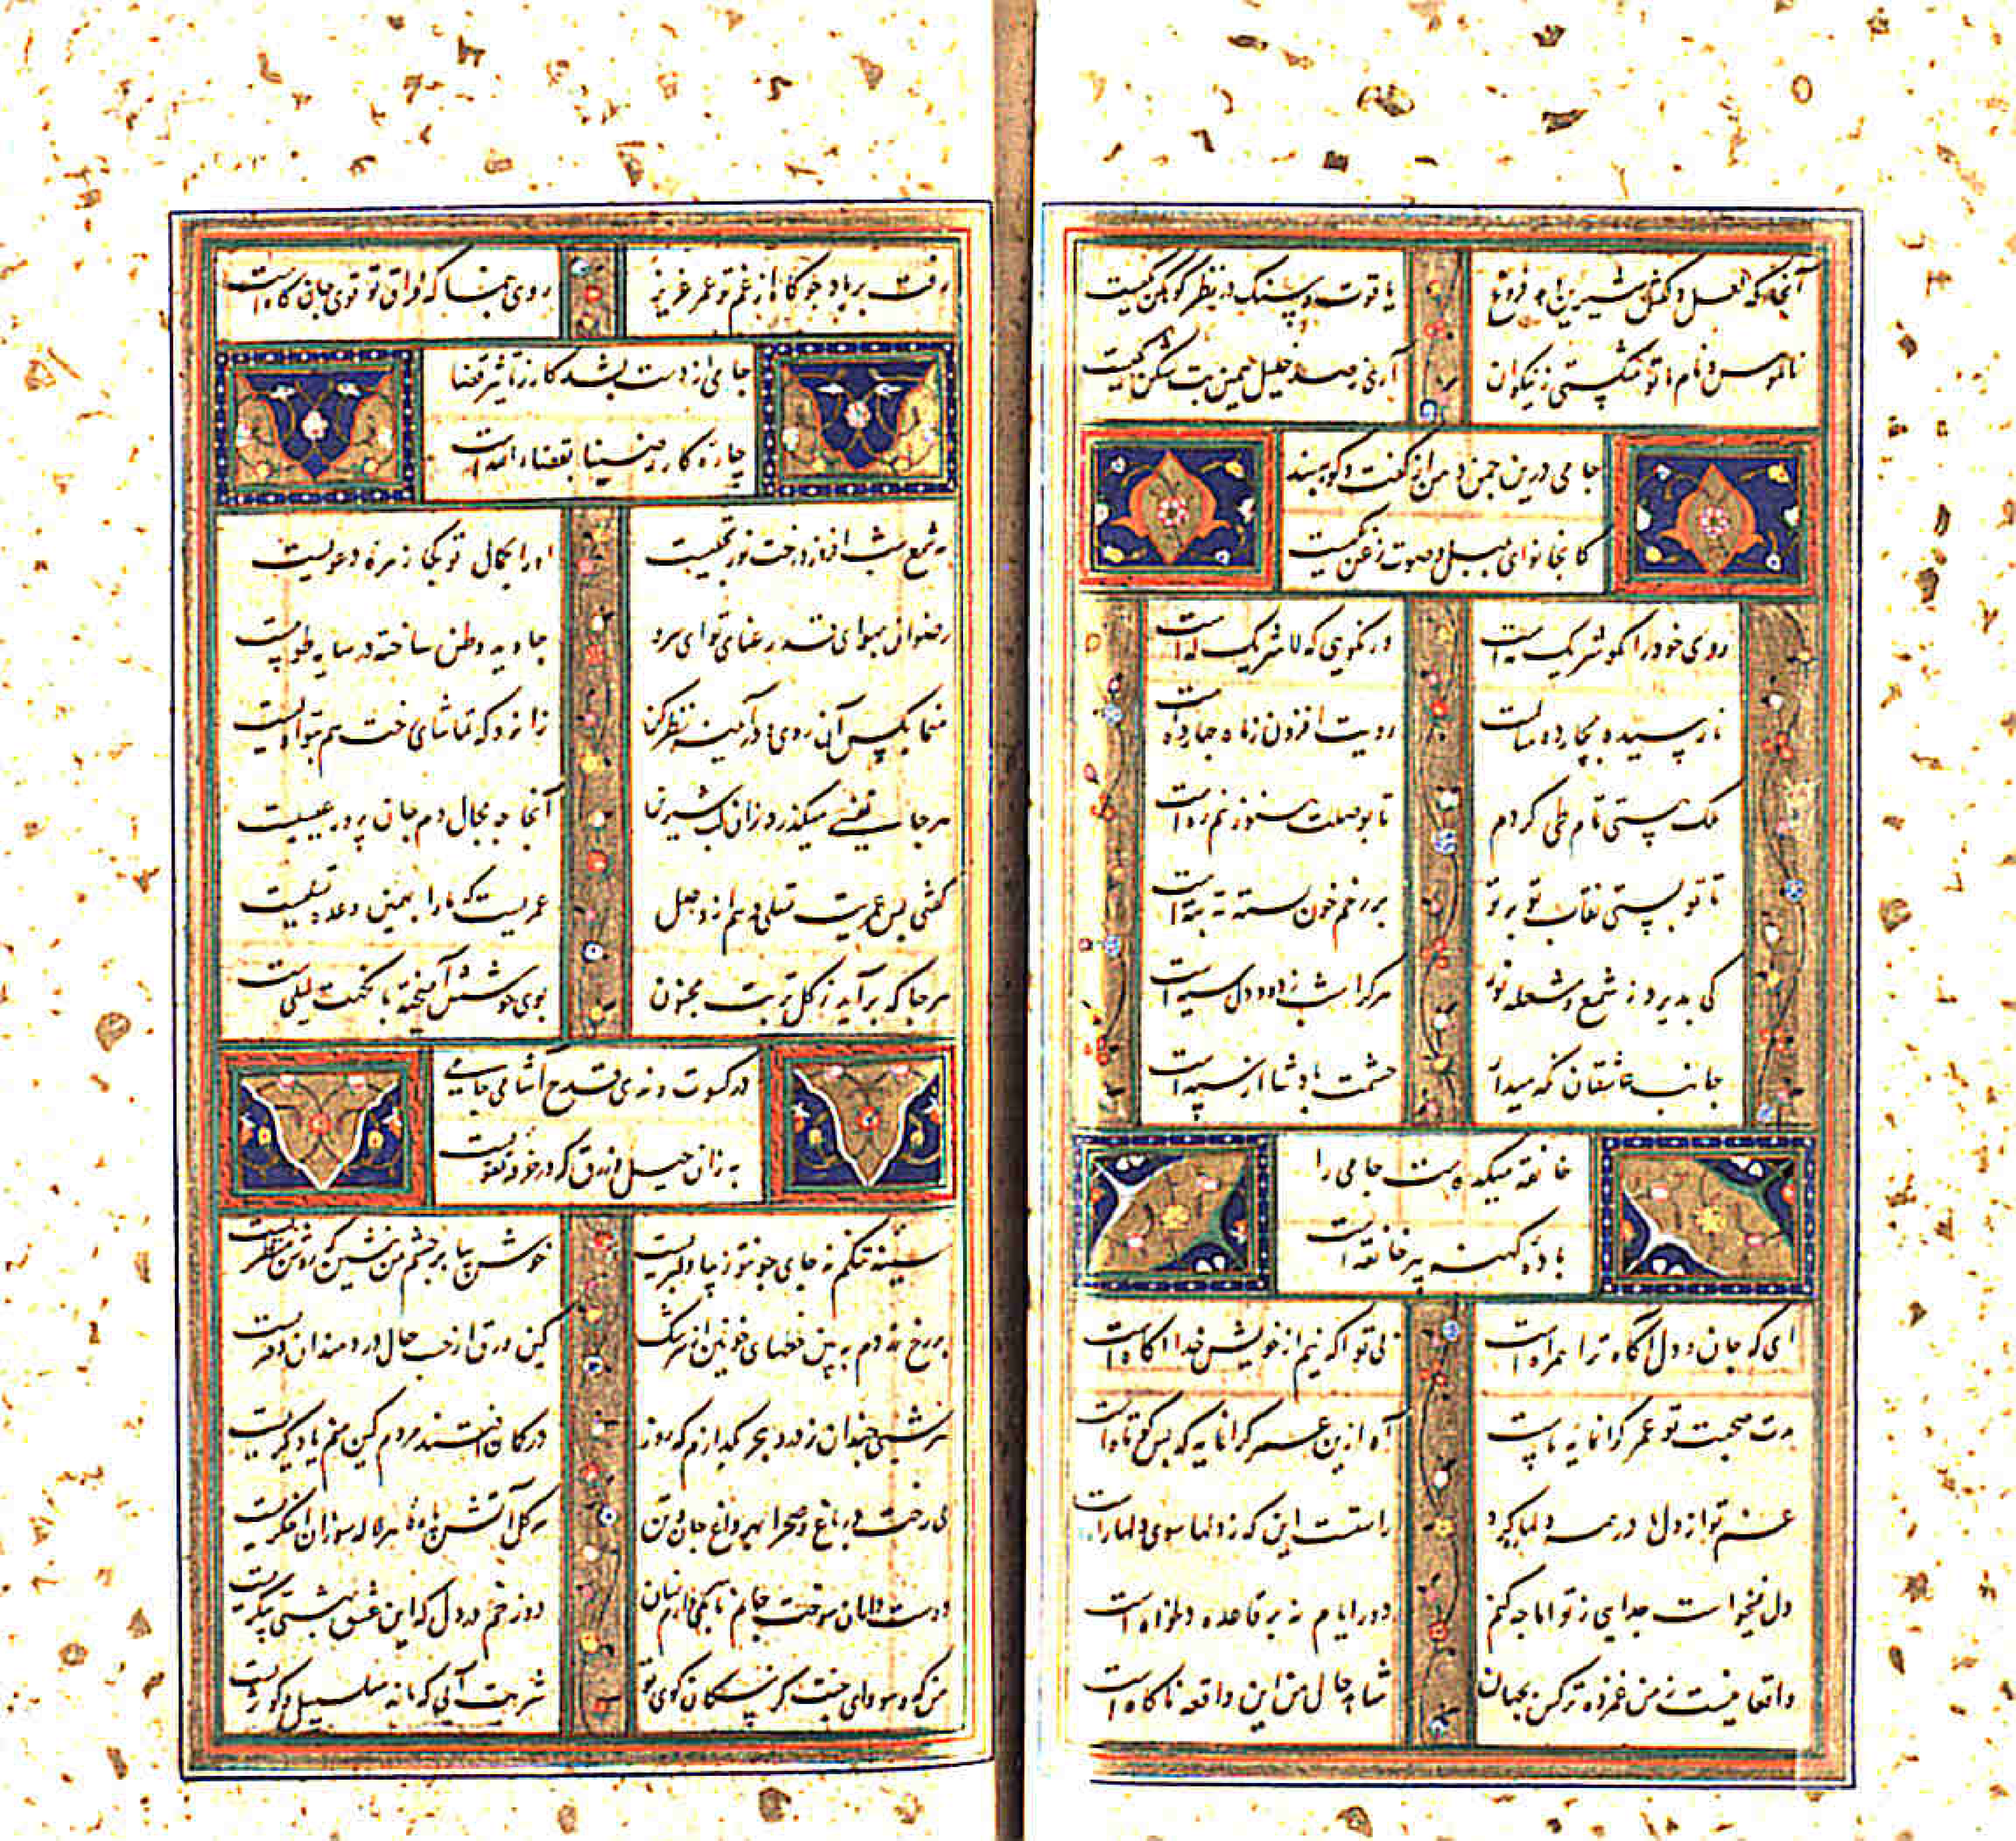 آنجا که لعل دلکش شیرین دهد فروغ
یاقوت و سنگ در نظر کوهکن یکیست
ناموس ما و نام تو شکستی ز نیکوان
آری ز صد خلیل همین بت شکن یکیست
جامی درین چمن دهن از گفت و گو ببند
کانجا نوای بلبل و صوت زغن یکیست
روی خود را مگو شریک مه است
در نکویی که لا شریک له است
نارسیده بچارده سالت
رویت افزون ز ماه چارده است
ملک هستی تمام طی کردم
تا بوصلت هنوز نیم ره است
تا تو بستی نقاب تو بر تو
بر رخم خون بسته ته به ته است
کی پذیرد ز شمع و مشعله نور
هر کرا شب ز دود دل سیه است
جانب عاشقان نگه میدار
حشمت پادشا از سپه است
خانقه میکده است جامی را
باده کهنه پیر خانقه است
ای که جان و دل آگاه ترا همراه است
بی تو آگه نیم از خویش خدا آگاه است
مدت صحبت تو عمر گرانمایه ماست
آه ازین عمر گرانمایه که بس کوتاه است
غم تو از دل ما در همه دلها گیرد
راستست این که ز دلها سوی دلها راه است
دل نمیخواست جدایی ز تو اما چه کنم
دور ایام نه بر قاعده دلخواه است
واقعا نیست ز من غمزده تر کس بجهان
شاهد حال من این واقعه ناگاه است
رفت بر باد چو کاه از غم تو عمر عزیز
روی بنما که فراق تو قوی جان کاه است
جامی از دست بشد کار ز تاثیر قضا
چاره کار رضینا بقضاء الله است
نه شمع شب افروز رخت نور تجلیست
او را بکمال تو کجا زهره دعویست
رضوان بهوای قد رعنای تو ای سرو
جاوید وطن ساخته در سایه طوبیست
منما بکس آن روی و در آیینه نظر کن
زانرو که تماشای رخت هم بتو اولیست
هر جا سخنی میگذرد زان لب شیرین
آنجا چه مجال دم جان پرور عیسیست
گفتی پس عمریت تسلی دهم از وصل
عمریست که ما را بهمین وعده تسلیست
هر جا که برآید ز گل تربت مجنون
بوی خوشش آمیخته با نکهت لیلیست
در کسوت رندی قدح آشامی جامی
به زان حیل و زرق که در خرقه تقویست
سینه تنگم نه جای چون تو زیبا دلبریست
خوش بیا بر چشم من بنشین که روشن منظریست
بر رخ زردم ببین خطهای خونین از سرشک
کین ورق از حسب حال دردمندان دفتریست
هر شبی چندان ز درد هجر بگدازم که روز
در گمان افتند مردم کین منم یا دیگریست
بی رخت در باغ و صحرا بهر داغ جان و تن
هر گل آتش پاره هر لاله سوزان اخگریست
دوست دامان سوخت جانم تا بکی دارم نهان
دوزخم در دل که این عشق بهشتی پیکریست
من که و سودای جنت کز سگان کوی تو
شربت آبی که مانده سلسبیل و کوثریست